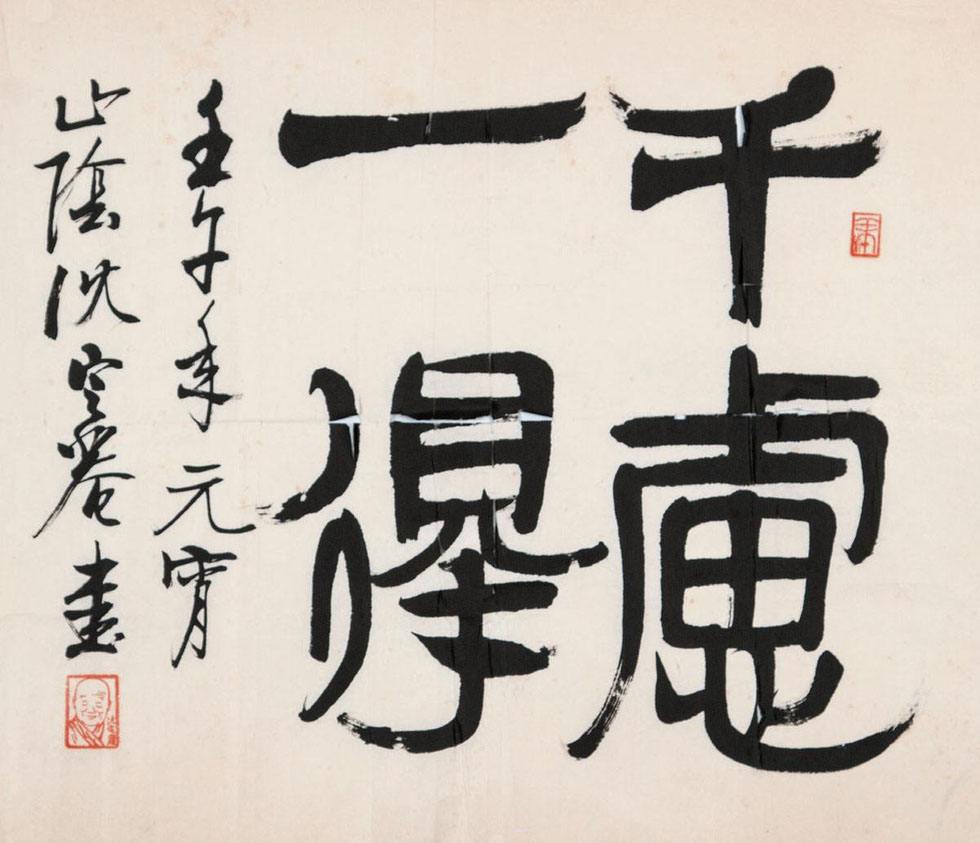 千慮
一得
壬午年元宵
山陰沈定庵書